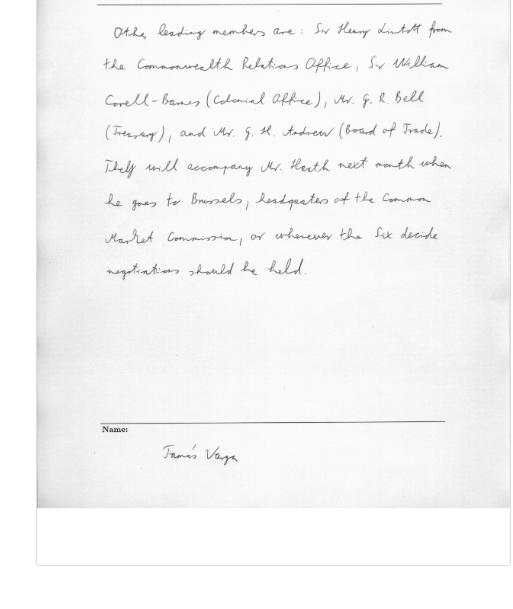 Other leading members are: Sir Henry Lintott from
the Commonwealth Relations Office, Sir William
Gorell-Barnes (Colonial Office), Mr. G. R. Bell
(Treasury), and Mr. G. H. Andrew (Board of Trade).
They will accompany Mr. Heath next month when
he goes to Brussels, headquaters of the Common
Market Commission, or wherever the Six decide
negotiations should be held.
Name:
Tamás Varga